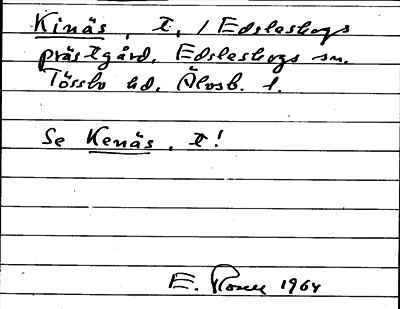 Kinäs, t., i Edsleskogs
prästgård, Edsleskogs sn.
Tössbo hd, Älvsb. l.
Se Kenäs, t!
E. 1964